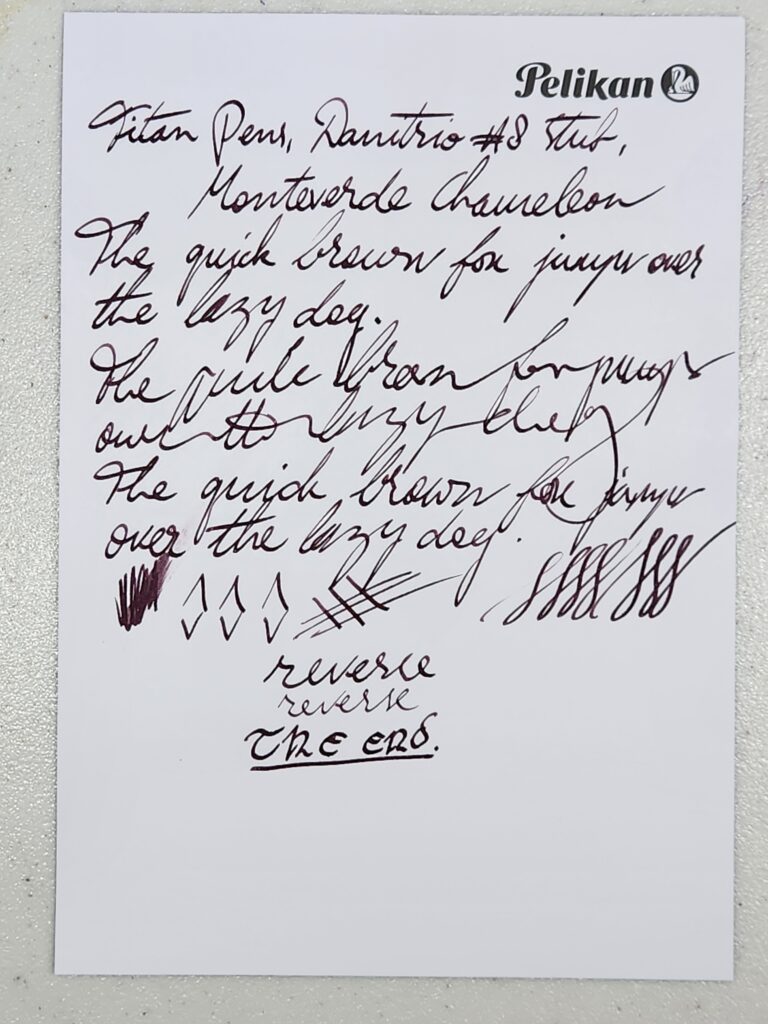 Pelikan
Titan Pens, Danitrio #8 Stub,
Monteverde Chameleon
The quick brown fox jumps over
the lazy dog.
The quick brown fox jumps
over the lazy dog
The quick brown fox jumps
over the lazy dog.
reverse
reverse
THE END.